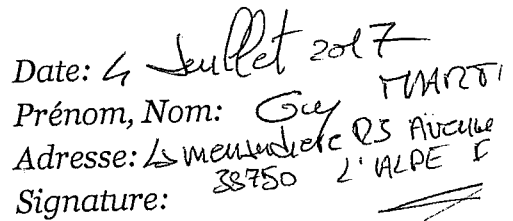 Date: 4 Juillet 2017
Prénom, Nom: Guy MARTI
Adresse: 25 Avenue
38750 L'ALPE
Signature: